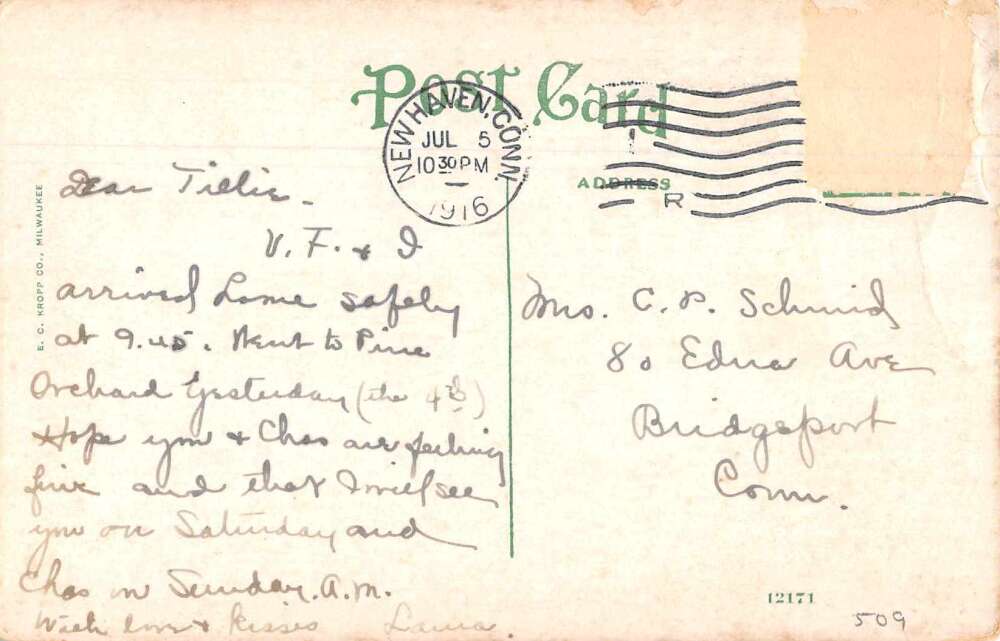 Post Card
NEW HAVEN, CONN.
JUL 5
10 30 PM
1916
ADDRESS
R
E. C. KROPP CO., MILWAUKEE
Dear Tillie -
V. F. & I
arrived home safely
at 9.45. Went to Pine
Orchard Yesterday (the 4th)
Hope you & Chas are feeling
fine and that I will see
you on Saturday and
Chas on Sunday. A.M.
With love & kisses Laura.
Mrs. C. P. Schmid
80 Edna Ave
Bridgeport
Conn.
12171
509